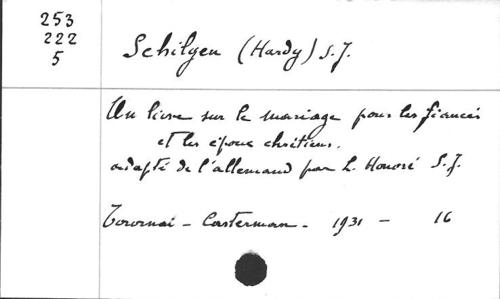 253
222
5
Schilgen (Hardy) S.J.
Un livre sur le mariage pour les fiancés
et les époux chrétiens.
adapté de l'allemand par L. Honoré S.J.
Tournai - Casterman - 1931 - 16